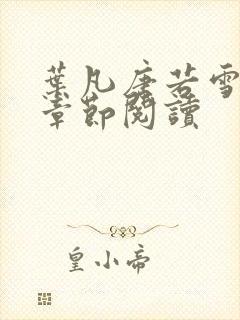 葉凡唐若雪
章節閱讀
皇小帝